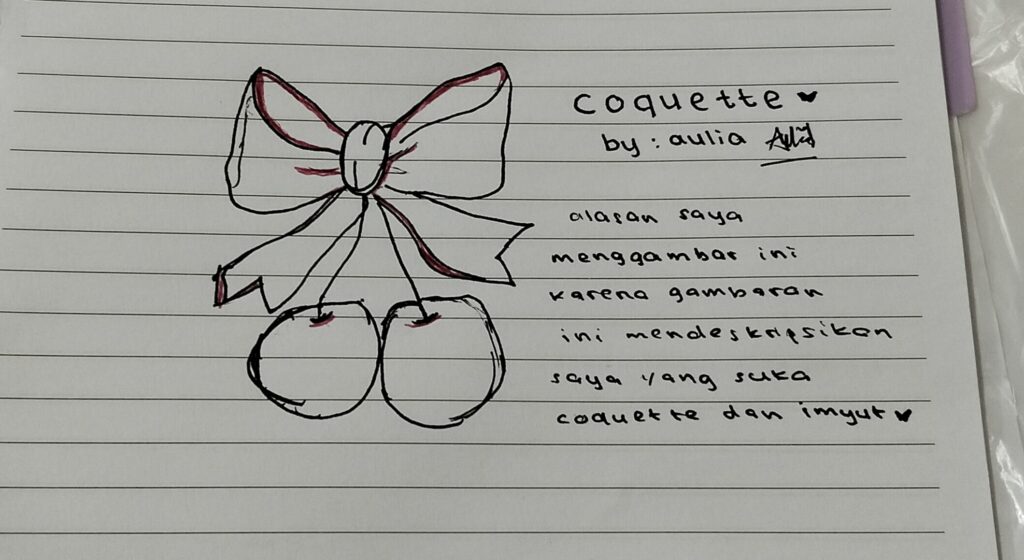 coquette
by : aulia
alasan saya
menggambar ini
karena gambaran
ini mendeskripsikan
saya yang suka
coquette dan imyut